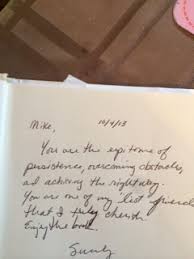 Mike, 10/4/13
You are the epitome of
persistence, overcoming obstacles,
ad achieving the right way.
You are one of my
that I truly cherish.
Enjoy the book.